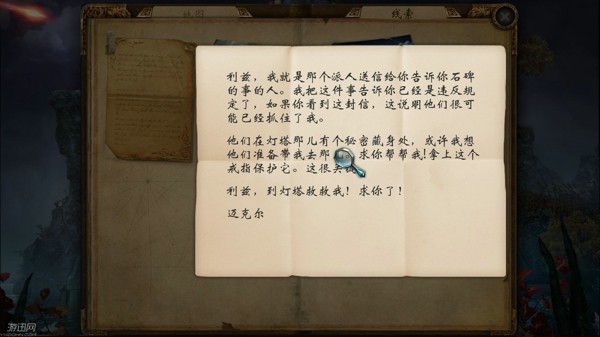 线索
利兹，我就是那个派人送信给你告诉你石碑
的事的人。我把这件事告诉你已经是违反规
定了，如果你看到这封信，这说明他们很可
能已经抓住了我。
他们在灯塔那儿有个秘密藏身处，或许我想
他们准备带我去那 求你帮帮我!拿上这个
戒指保护它。这很关
利兹，到灯塔救救我！求你了！
迈克尔
游迅网